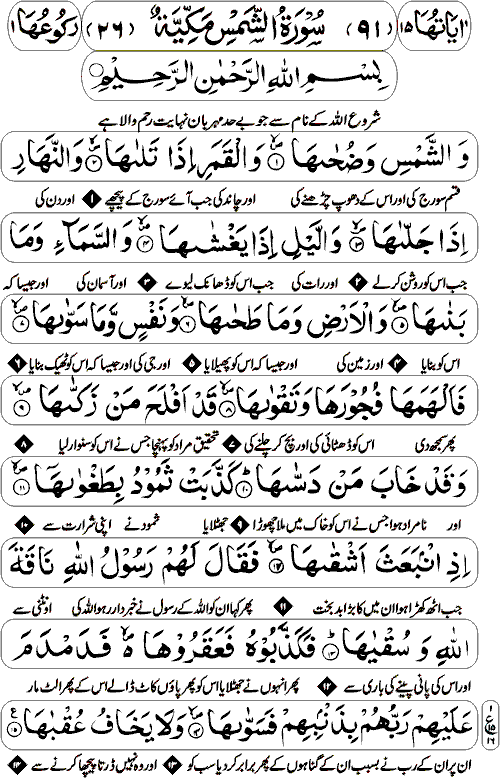 اٰیَاتُهَا ۱۵ (۹۱) سُوْرَةُ الشَّمْسِ مَكِّیَّةٌ (۲۶) رُكُوْعُهَا ۱
بِسْمِ اللّٰهِ الرَّحْمٰنِ الرَّحِیْمِ
شروع اللہ کے نام سے جو بے حد مہربان نہایت رحم والا ہے
وَ الشَّمْسِ وَ ضُحٰىهَا ۱ وَ الْقَمَرِ اِذَا تَلٰىهَا ۲ وَ النَّهَارِ
قسم سورج کی اور اس کے دھوپ چڑھنے کی اور چاند کی جب آئے سورج کے پیچھے ۱ اور دن کی
اِذَا جَلّٰىهَا ۳ وَ الَّیْلِ اِذَا یَغْشٰىهَا ۴ وَ السَّمَآءِ وَ مَا
جب اس کو روشن کر لے ۲ اور رات کی جب اس کو ڈھانک لیوے ۳ اور آسمان کی اور جیسا کہ
بَنٰىهَا ۵ وَ الْاَرْضِ وَ مَا طَحٰىهَا ۶ وَ نَفْسٍ وَّ مَا سَوّٰىهَا ۷
اس کو بنایا ۴ اور زمین کی اور جیسا کہ اس کو پھیلایا ۵ اور جی کی اور جیسا کہ اس کو ٹھیک بنایا ۶
فَاَلْهَمَهَا فُجُوْرَهَا وَ تَقْوٰىهَا ۸ قَدْ اَفْلَحَ مَنْ زَكّٰىهَا ۹
پھر سمجھ دی اس کو ڈھٹائی کی اور بچ کر چلنے کی ۷ تحقیق مراد کو پہنچا جس نے اس کو سنوار لیا ۸
وَ قَدْ خَابَ مَنْ دَسّٰىهَا ۱۰ كَذَّبَتْ ثَمُوْدُ بِطَغْوٰىهَاۤ ۱۱
اور نامراد ہوا جس نے اس کو خاک میں ملا چھوڑا ۹ جھٹلایا ثمود نے اپنی شرارت سے ۱۰
اِذِ انْۢبَعَثَ اَشْقٰىهَا ۱۲ فَقَالَ لَهُمْ رَسُوْلُ اللّٰهِ نَاقَةَ
جب اٹھ کھڑا ہوا ان میں کا بڑا بد بخت ۱۱ پھر کہا ان کو اللہ کے رسول نے خبردار رہو اللہ کی اونٹنی سے
اللّٰهِ وَ سُقْیٰهَا ۱۳ فَكَذَّبُوْهُ فَعَقَرُوْهَا فَدَمْدَمَ
اور اس کی پانی پینے کی باری سے ۱۲ پھر انہوں نے جھٹلایا اس کو پھر پاؤں کاٹ ڈالے اس کے پھر الٹ مارا
عَلَیْهِمْ رَبُّهُمْ بِذَنْۢبِهِمْ فَسَوّٰىهَا ۱۴ وَ لَا یَخَافُ عُقْبٰهَا ۱۵
ان پر ان کے رب نے بسبب ان کے گناہوں کے پھر برابر کر دیا سب کو ۱۳ اور وہ نہیں ڈرتا پیچھا کرنے سے ۱۴